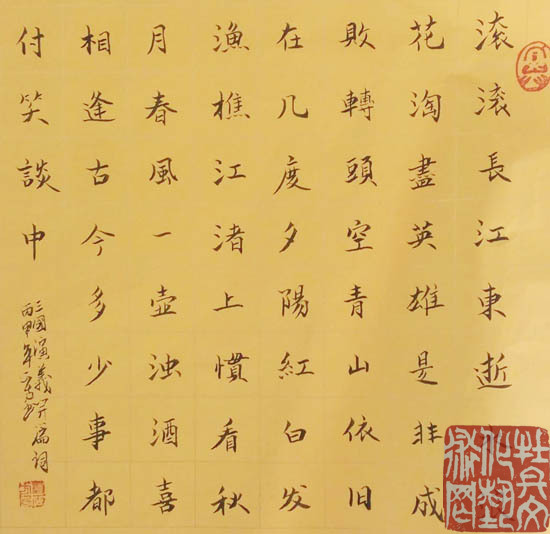 滚滚長江東逝
花淘盡英雄是非成
敗轉頭空青山依旧
在几度夕陽紅白发
漁樵江渚上慣看秋
月春風一壶浊酒喜
相逢古今多少事都
付笑談申
三國演義开篇词
丙申年